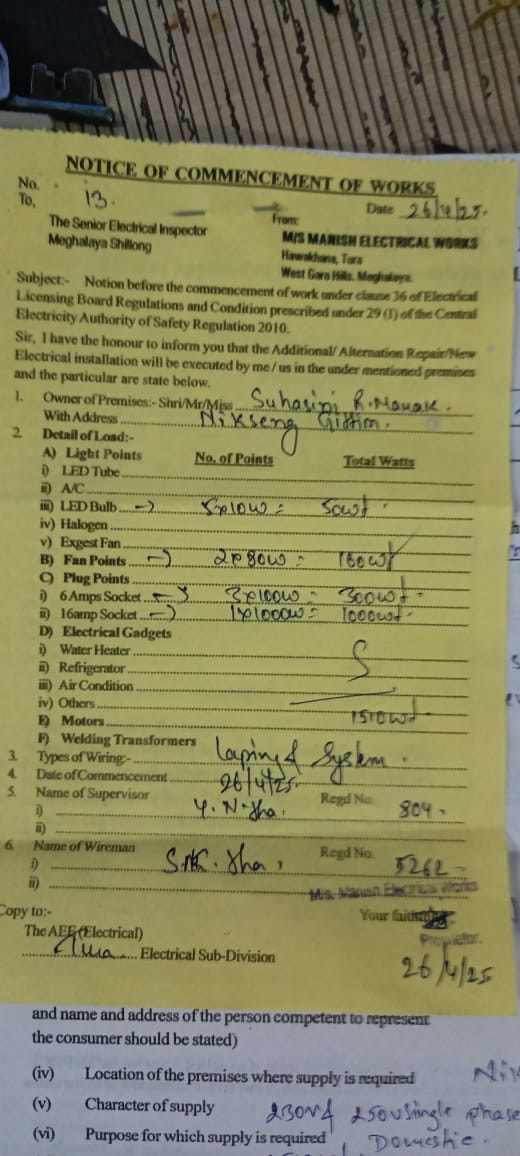 NOTICE OF COMMENCEMENT OF WORKS
No. 13.
Date 26/4/25.
To,
The Senior Electrical Inspector
Meghalaya Shillong
From:
M/S MANISH ELECTRICAL WORKS
Hawakhana, Tura
West Garo Hills, Meghalaya.
Subject:- Notion before the commencement of work under clause 36 of Electrical
Licensing Board Regulations and Condition prescribed under 29 (1) of the Central
Electricity Authority of Safety Regulation 2010.
Sir, I have the honour to inform you that the Additional/ Alternation Repair/New
Electrical installation will be executed by me / us in the under mentioned premises
and the particular are state below.
1. Owner of Premises:- Shri/Mr/Miss Suhasini R. Marak.
With Address Nikseng Gittim.
2. Detail of Load:-
A) Light Points No. of Points Total Watts
i) LED Tube
ii) A/C
iii) LED Bulb → 5x10w = 50wt
iv) Halogen
v) Exgest Fan
B) Fan Points → 2x80w = 160wt
C) Plug Points
i) 6 Amps Socket → 3x100w = 300wt
ii) 16amp Socket → 1x1000w = 1000wt
D) Electrical Gadgets
i) Water Heater
ii) Refrigerator
iii) Air Condition
iv) Others
E) Motors 1510wt
F) Welding Transformers
3. Types of Wiring:- System.
4. Date of Commencement 26/4/25.
5. Name of Supervisor Regd No.
i) Y. N. Jha. 804
ii)
6. Name of Wireman Regd No.
i) Jha, 5262
ii)
M/s. Manish Electrical Works
Copy to:- Your
The AEE (Electrical) Proprietor.
Tura Electrical Sub-Division
26/4/25
and name and address of the person competent to represent
the consumer should be stated)
(iv) Location of the premises where supply is required
(v) Character of supply 230v 250v single phase
(vi) Purpose for which supply is required Domestic.